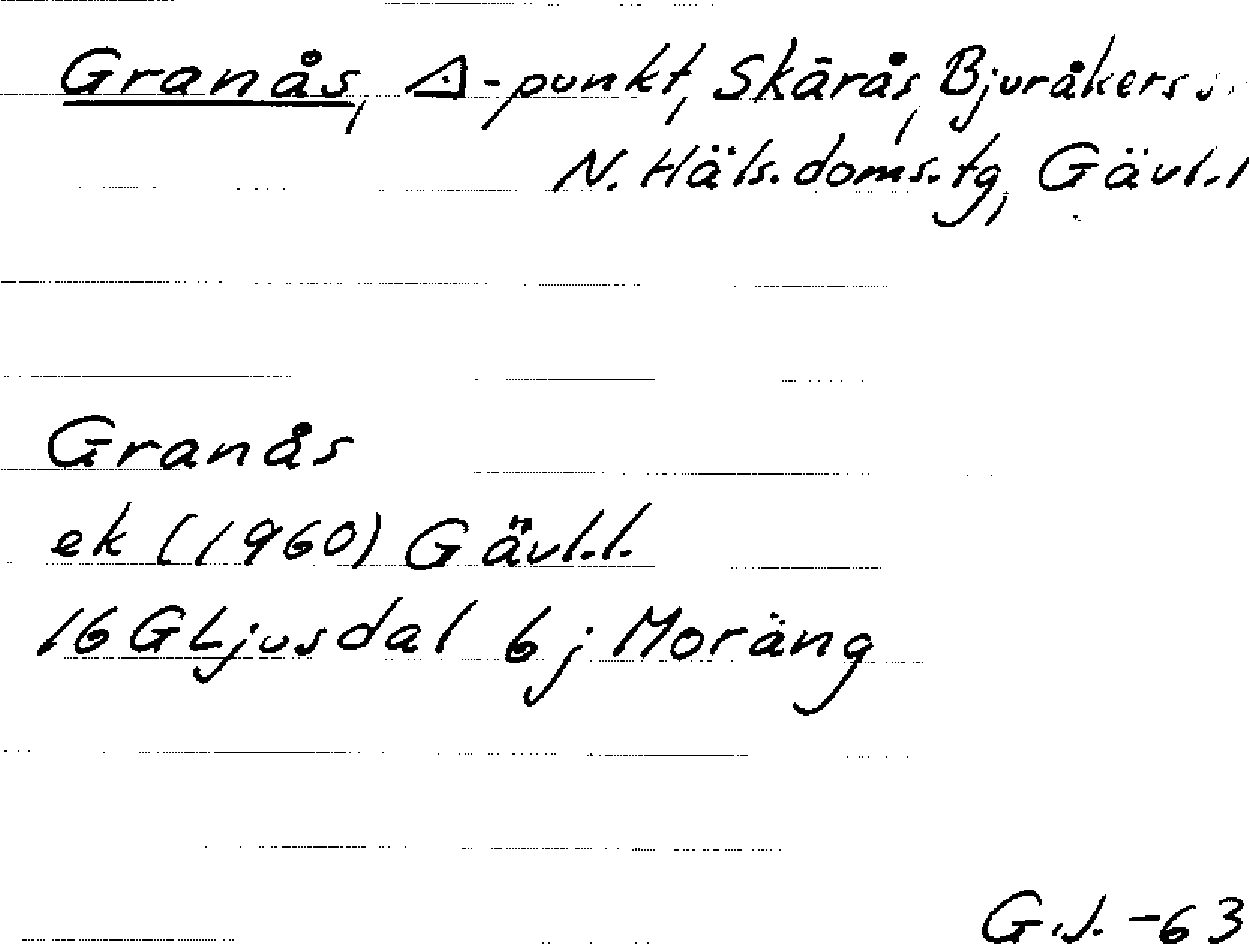 Granås, △-punkt, Skärås, Bjuråkers s.
N. Häls. doms. tg, Gävl. l
Granås
ek (1960) Gävl. l.
16 G Ljusdal 6 j Moräng
G.J. -63